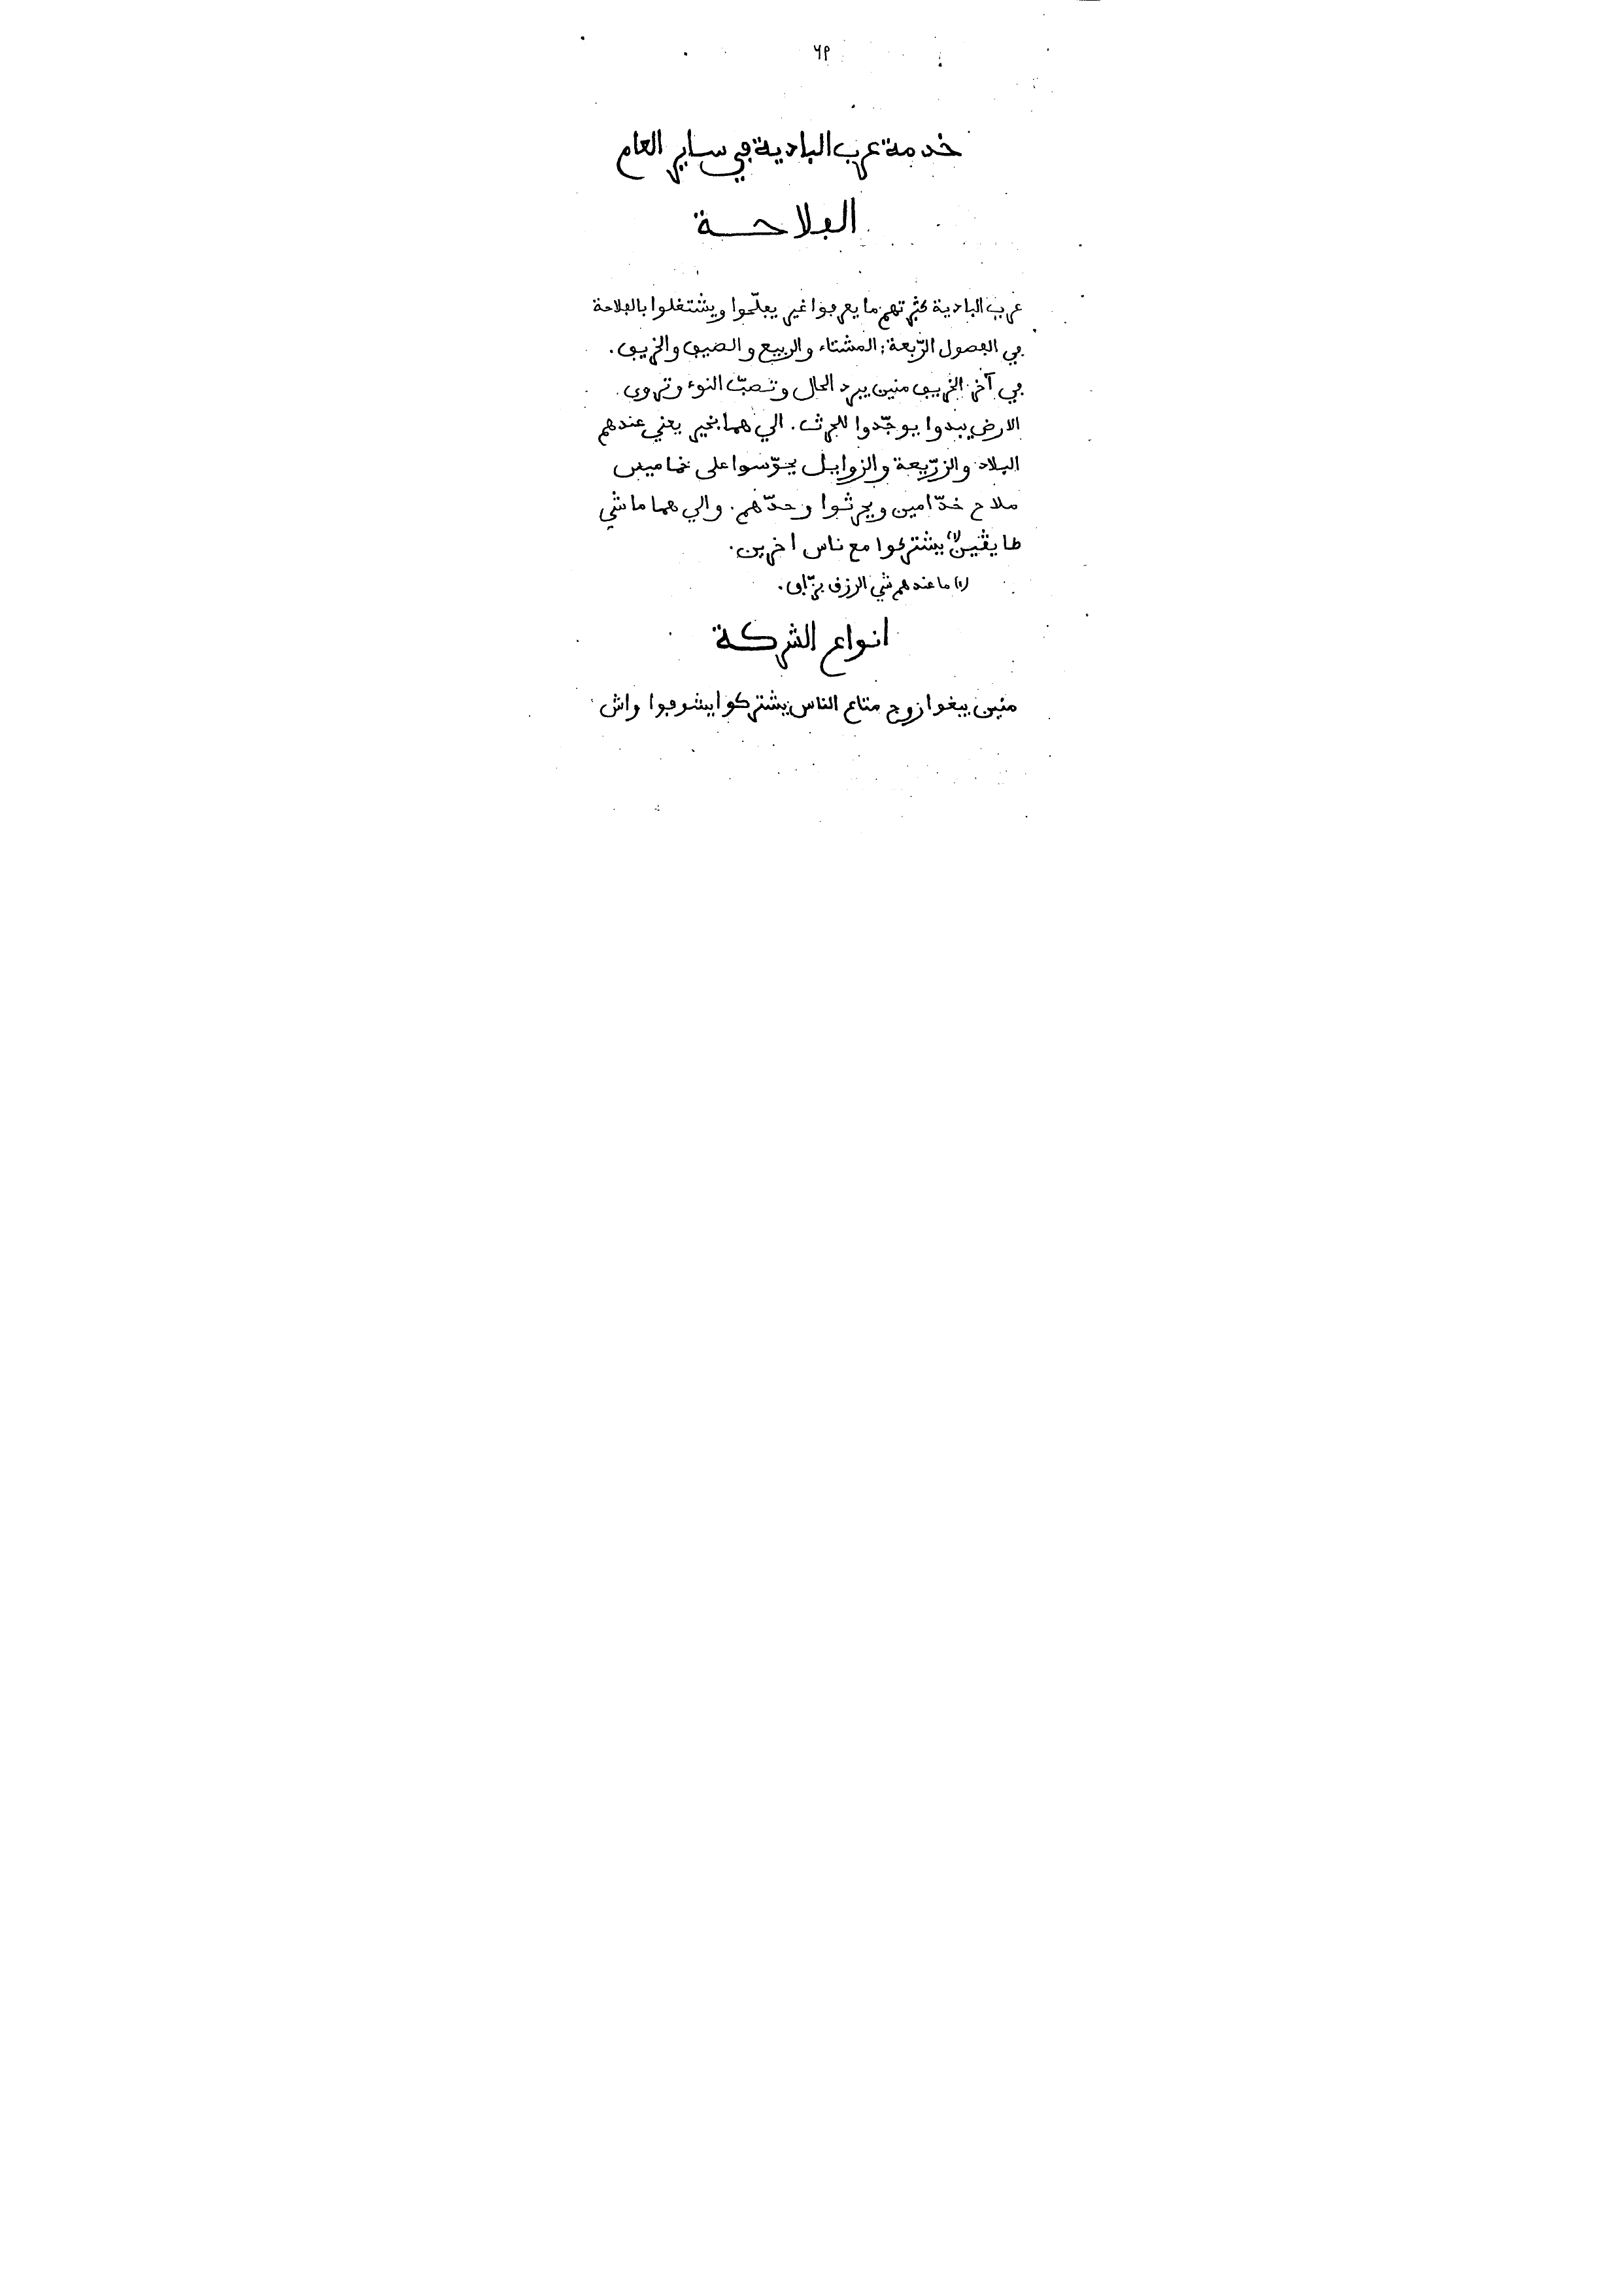 ٦٩
خدمة عرب البادية ڢي ساير العام
الڢلاحة
عرب البادية كثرتهم ما يعرڢوا غير يڢلّحوا ويشتغلوا بالڢلاحة
ڢي الڢصول الرّبعة: المشتاء والربيع والصيڢ والخريڢ.
ڢي آخر الخريڢ منين يبرد الحال وتصبّ النوء وتروى
الارض يبدوا يوجّدوا للحرث. الي هما بخير يعني عندهم
البلاد والزرّيعة والزوايل يحوّسوا على خماميس
ملاح خدّامين ويحرثوا وحدّهم. والي هما ماشي
طايڨين(١) يشتركوا مع ناس اخرين.
(١) ما عندهم شي الرزق بزّاڢ.
انواع الشركة
منين يبغوا زوج متاع الناس يشتركوا يشوڢوا واش